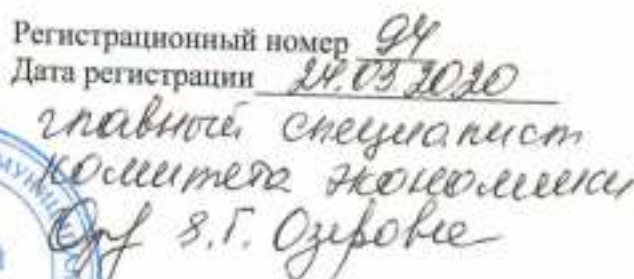 Регистрационный номер 94
Дата регистрации 24.03.2020
главный специалист
комитета экономики
З.Г. Озерова